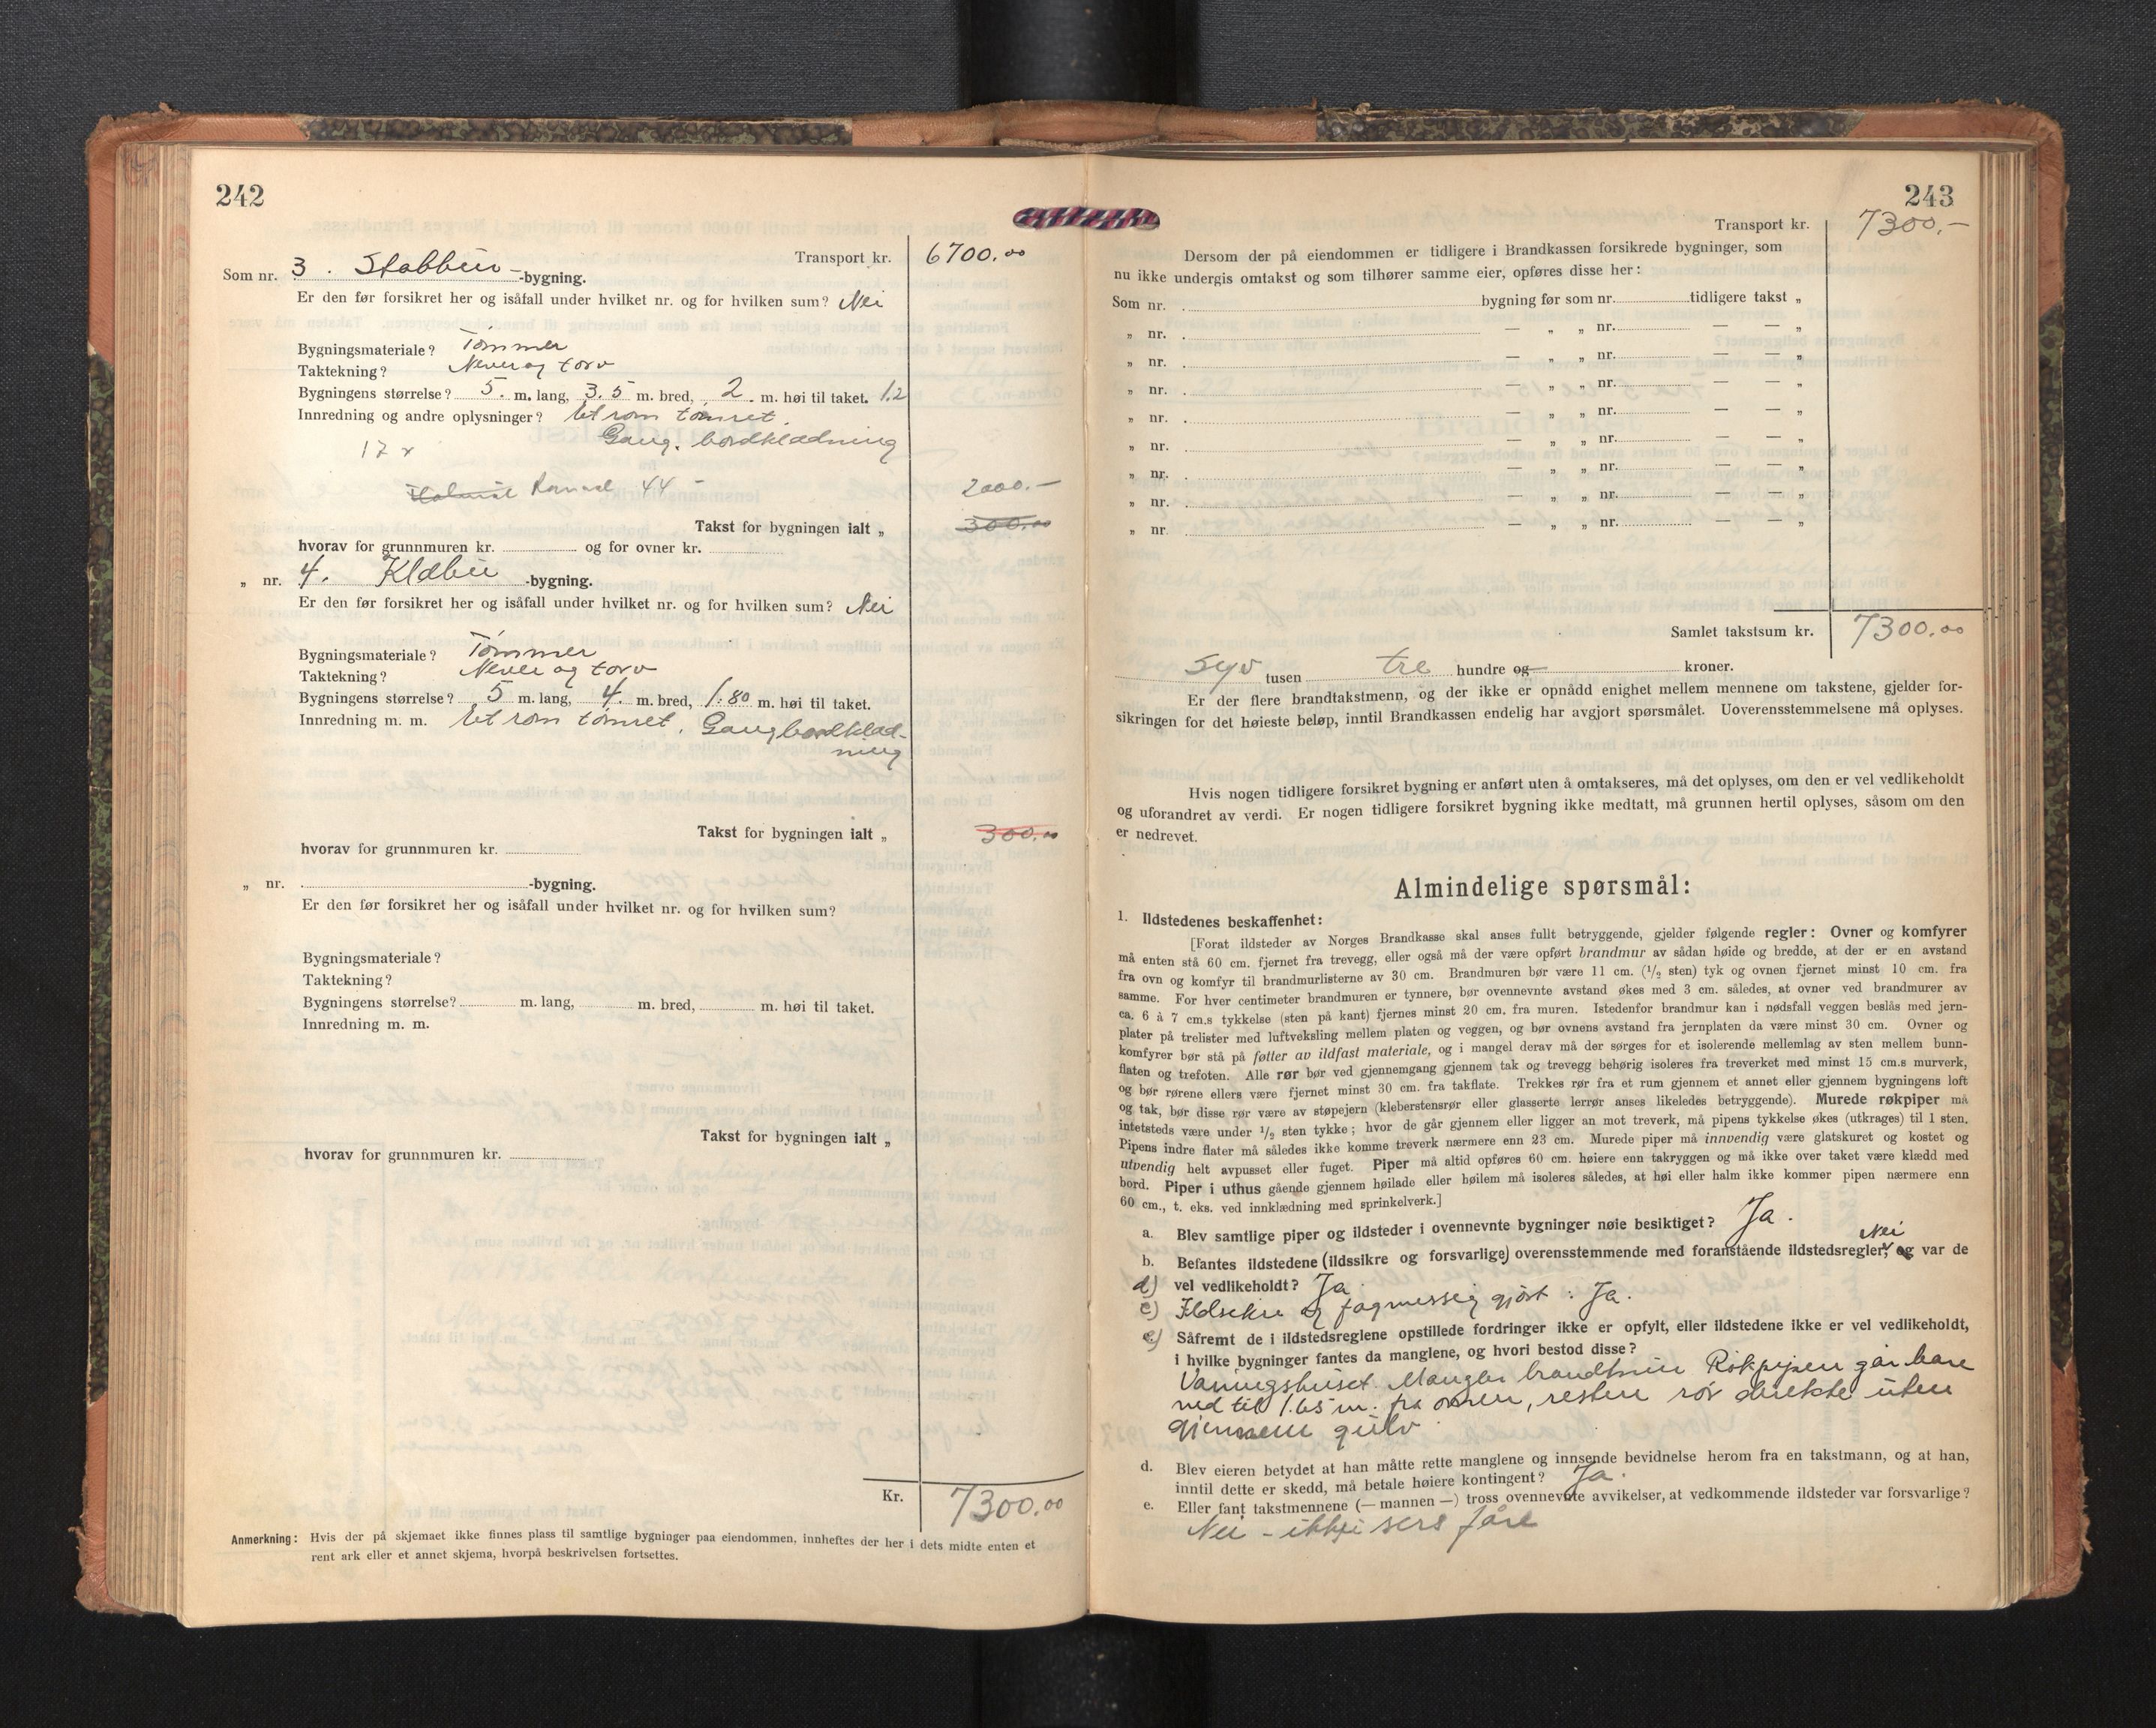 242
Transport kr. 6700.00
Som nr. 3. Stabbur -bygning.
Er den før forsikret her og isåfall under hvilket nr. og for hvilken sum? Nei
Bygningsmateriale? Tømmer
Taktekning? Never og torv
Bygningens størrelse? 5. m. lang, 3.5 m. bred, 2. m. høi til taket. 1.2
Innredning og andre oplysninger? Et rom tømret.
Gang. bordklædning
17 x
44 - 2000.—
Takst for bygningen ialt „ 300.00
hvorav for grunnmuren kr. og for ovner kr.
„ nr. 4. Klæbu -bygning.
Er den før forsikret her og isåfall under hvilket nr. og for hvilken sum? Nei
Bygningsmateriale? Tømmer
Taktekning? Never og torv
Bygningens størrelse? 5 m. lang, 4. m. bred, 1.80 m. høi til taket.
Innredning m. m. Et rom tømret. Gang bordklæd-
ning
Takst for bygningen ialt „ 300.00
hvorav for grunnmuren kr.
„ nr. -bygning.
Er den før forsikret her og isåfall under hvilket nr. og for hvilken sum?
Bygningsmateriale?
Taktekning?
Bygningens størrelse? m. lang, m. bred, m. høi til taket.
Innredning m. m.
Takst for bygningen ialt „
hvorav for grunnmuren kr.
Kr. 7300.00
Anmerkning: Hvis der på skjemaet ikke finnes plass til samtlige bygninger paa eiendommen, innheftes der her i dets midte enten et
rent ark eller et annet skjema, hvorpå beskrivelsen fortsettes.
243
Transport kr. 7300.—
Dersom der på eiendommen er tidligere i Brandkassen forsikrede bygninger, som
nu ikke undergis omtakst og som tilhører samme eier, opføres disse her:
Som nr. bygning før som nr. tidligere takst „
„ nr. — „ „ nr. — — „
„ nr. — „ „ nr. — — „
„ nr. — „ „ nr. — — „
„ nr. — „ „ nr. — — „
„ nr. — „ „ nr. — — „
„ nr. — „ „ nr. — — „
„ nr. — „ „ nr. — — „
„ nr. — „ „ nr. — — „
Samlet takstsum kr. 7300.00
Syv tusen tre hundre og kroner.
Er der flere brandtakstmenn, og der ikke er opnådd enighet mellem mennene om takstene, gjelder for-
sikringen for det høieste beløp, inntil Brandkassen endelig har avgjort spørsmålet. Uoverensstemmelsene må oplyses.
Hvis nogen tidligere forsikret bygning er anført uten å omtakseres, må det oplyses, om den er vel vedlikeholdt
og uforandret av verdi. Er nogen tidligere forsikret bygning ikke medtatt, må grunnen hertil oplyses, såsom om den
er nedrevet.
Almindelige spørsmål:
1. Ildstedenes beskaffenhet:
[Forat ildsteder av Norges Brandkasse skal anses fullt betryggende, gjelder følgende regler: Ovner og komfyrer
må enten stå 60 cm. fjernet fra trevegg, eller også må der være opført brandmur av sådan høide og bredde, at der er en avstand
fra ovn og komfyr til brandmurlisterne av 30 cm. Brandmuren bør være 11 cm. (1/2 sten) tyk og ovnen fjernet minst 10 cm. fra
samme. For hver centimeter brandmuren er tynnere, bør ovennevnte avstand økes med 3 cm. således, at ovner ved brandmurer av
ca. 6 à 7 cm.s tykkelse (sten på kant) fjernes minst 20 cm. fra muren. Istedenfor brandmur kan i nødsfall veggen beslås med jern-
plater på trelister med luftveksling mellem platen og veggen, og bør ovnens avstand fra jernplaten da være minst 30 cm. Ovner og
komfyrer bør stå på føtter av ildfast materiale, og i mangel derav må der sørges for et isolerende mellemlag av sten mellem bunn-
flaten og trefoten. Alle rør bør ved gjennemgang gjennem tak og trevegg behørig isoleres fra treverket med minst 15 cm.s murverk,
og bør rørene ellers være fjernet minst 30 cm. fra takflate. Trekkes rør fra et rum gjennem et annet eller gjennem bygningens loft
og tak, bør disse rør være av støpejern (kleberstensrør eller glasserte lerrør anses likeledes betryggende). Murede røkpiper må
intetsteds være under 1/2 sten tykke; hvor de går gjennem eller ligger an mot treverk, må pipens tykkelse økes (utkrages) til 1 sten.
Pipens indre flater må således ikke komme treverk nærmere enn 23 cm. Murede piper må innvendig være glatskuret og kostet og
utvendig helt avpusset eller fuget. Piper må altid opføres 60 cm. høiere enn takryggen og må ikke over taket være klædd med
bord. Piper i uthus gående gjennem høilade eller høilem må isoleres således, at høi eller halm ikke kommer pipen nærmere enn
60 cm., t. eks. ved innklædning med sprinkelverk.]
a. Blev samtlige piper og ildsteder i ovennevnte bygninger nøie besiktiget? Ja.
Nei
b. Befantes ildstedene (ildssikre og forsvarlige) overensstemmende med foranstående ildstedsregler, og var de
d) vel vedlikeholdt? Ja
c) Ildsikre og fagmessig gjort: Ja.
e) Såfremt de i ildstedsreglene opstillede fordringer ikke er opfylt, eller ildstedene ikke er vel vedlikeholdt,
i hvilke bygninger fantes da manglene, og hvori bestod disse?
Vaningshuset. Mangler brandmur Rökpipen går bare
ned til 1.65 m. fra ovnen, resten rör direkte uten
gjennem gulv
d. Blev eieren betydet at han måtte rette manglene og innsende bevidnelse herom fra en takstmann, og at han,
inntil dette er skedd, må betale høiere kontingent? Ja.
e. Eller fant takstmennene (— mannen —) tross ovennevnte avvikelser, at vedkommende ildsteder var forsvarlige?
Nei - ikkje sers fåre